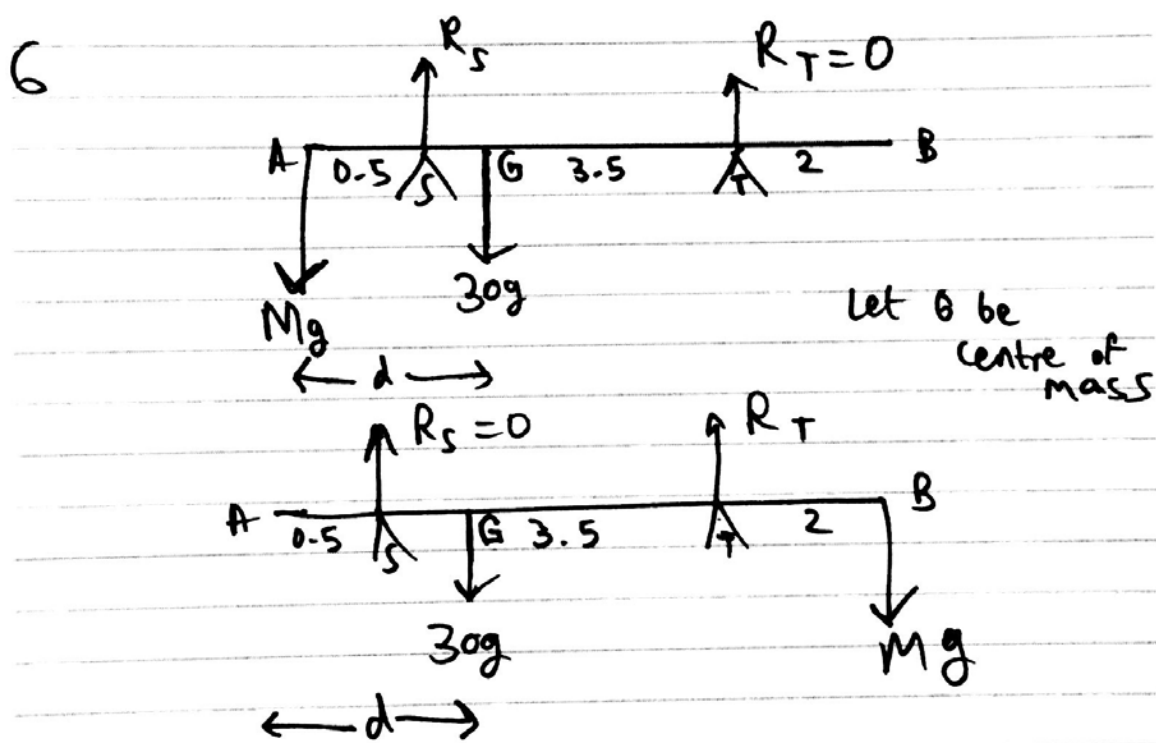 6
R_S R_T = 0
A 0.5 S G 3.5 T 2 B
Mg 30g
d
Let G be
centre of
mass
R_S = 0 R_T
A 0.5 S G 3.5 T 2 B
30g Mg
d